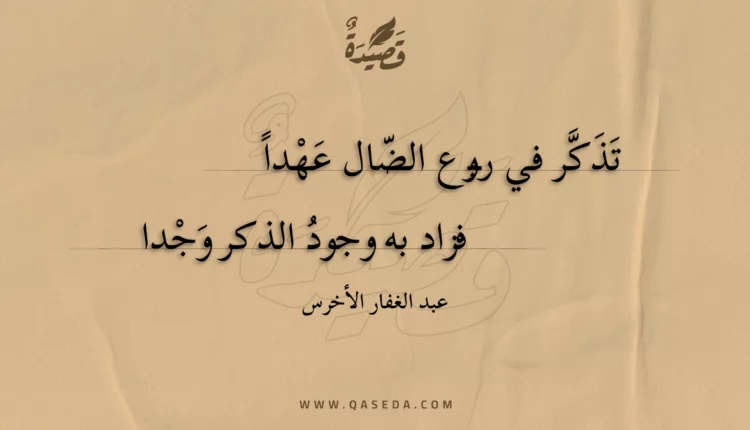 قَصِيْدَةٌ
تَذَكَّر في روع الضّال عَهْداً
فزاد به وجودُ الذكر وَجْدا
عبد الغفار الأخرس
WWW.QASEDA.COM